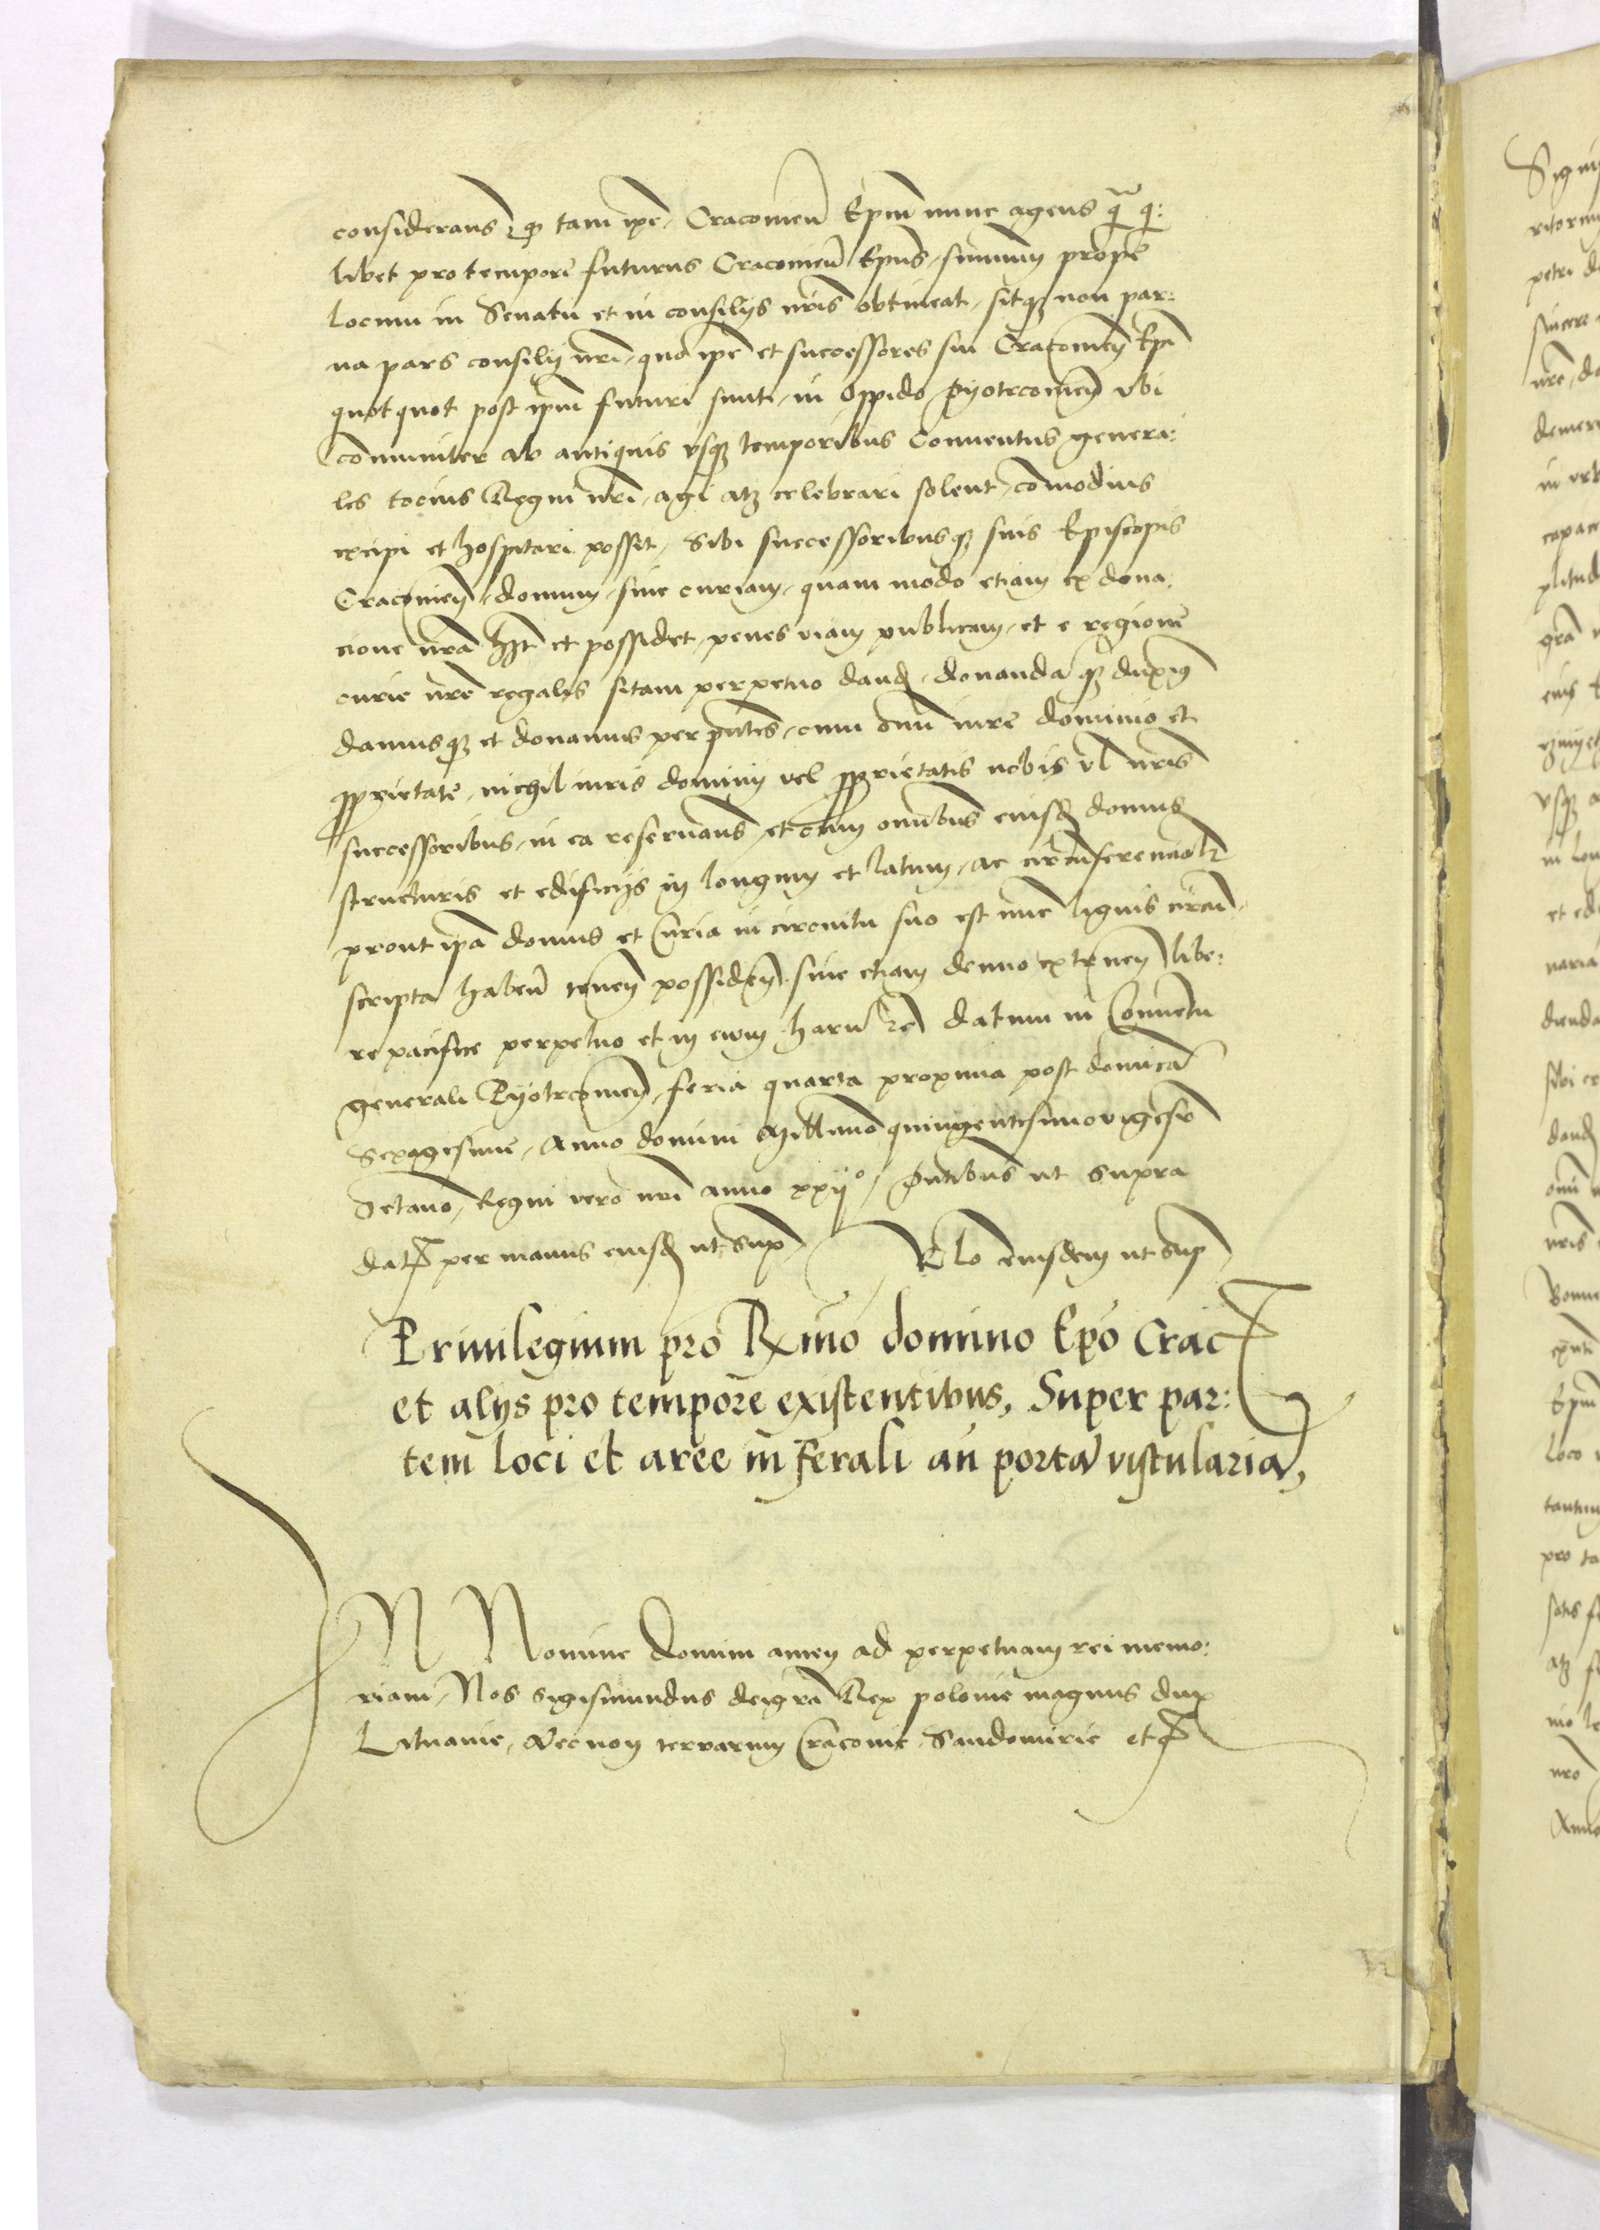 considerans qz tam ipe Cracovien Epm nunc agens qz qi:
libet pro tempore futurus Cracovien Epus summum prope
locum in Senatu et in consilijs nris obtineat sitqz non par:
va pars consilij nri quo ipe et successores sui Cracovien Epi
quotquot post ipm futuri sunt in Oppido Pyotrcovien vbi
communiter ab antiquis vsqz temporibus Conventus genera:
les tocius Regni nri agi atqz celebrari solent commodius
excipi et hospitari possit Sibi successoribusqz suis Episcopis
Cracovien domum sive curiam quam modo etiam ex dona:
cione nra hét et possidet penes viam publicam et e regione
curie nre regalis sitam perpetuo dand donandaqz duxim9
damusqz et donamus per pntes cum omni iure dominio et
pprietate nichil iuris dominij vel pprietatis nobis vl nris
successoribus in ea reservans et cum omnibus eiusd domus
structuris et edificijs in longum et latum ac circumferencialr
prout ipa domus et Curia in circuitu suo est nunc lignis circu
scripta haben tenen possiden sive etiam denuo extruen libe:
re pacifice perpetuo et in evum harum &c datum in Conventu
generali Pyotrcovien feria quarta proxima post dominica
Sexagesime Anno domini Millimo quingentesimovigesio
Octavo Regni vero nri anno xxij° Pntibus ut supra
dat per manus eiusd ut sup Rlo eiusdem ut sup
Privilegium pro Rxmo domino Epo Crac
et alijs pro tempore existentibus, Super par:
tem loci et aree in ferali an porta vistularia,
IN Nomine Domini amen ad perpetuam rei memo:
riam Nos Sigismundus dei gra Rex polonie magnus dux
Lituanie, Necnon terrarum Cracovie Sandomirie etc